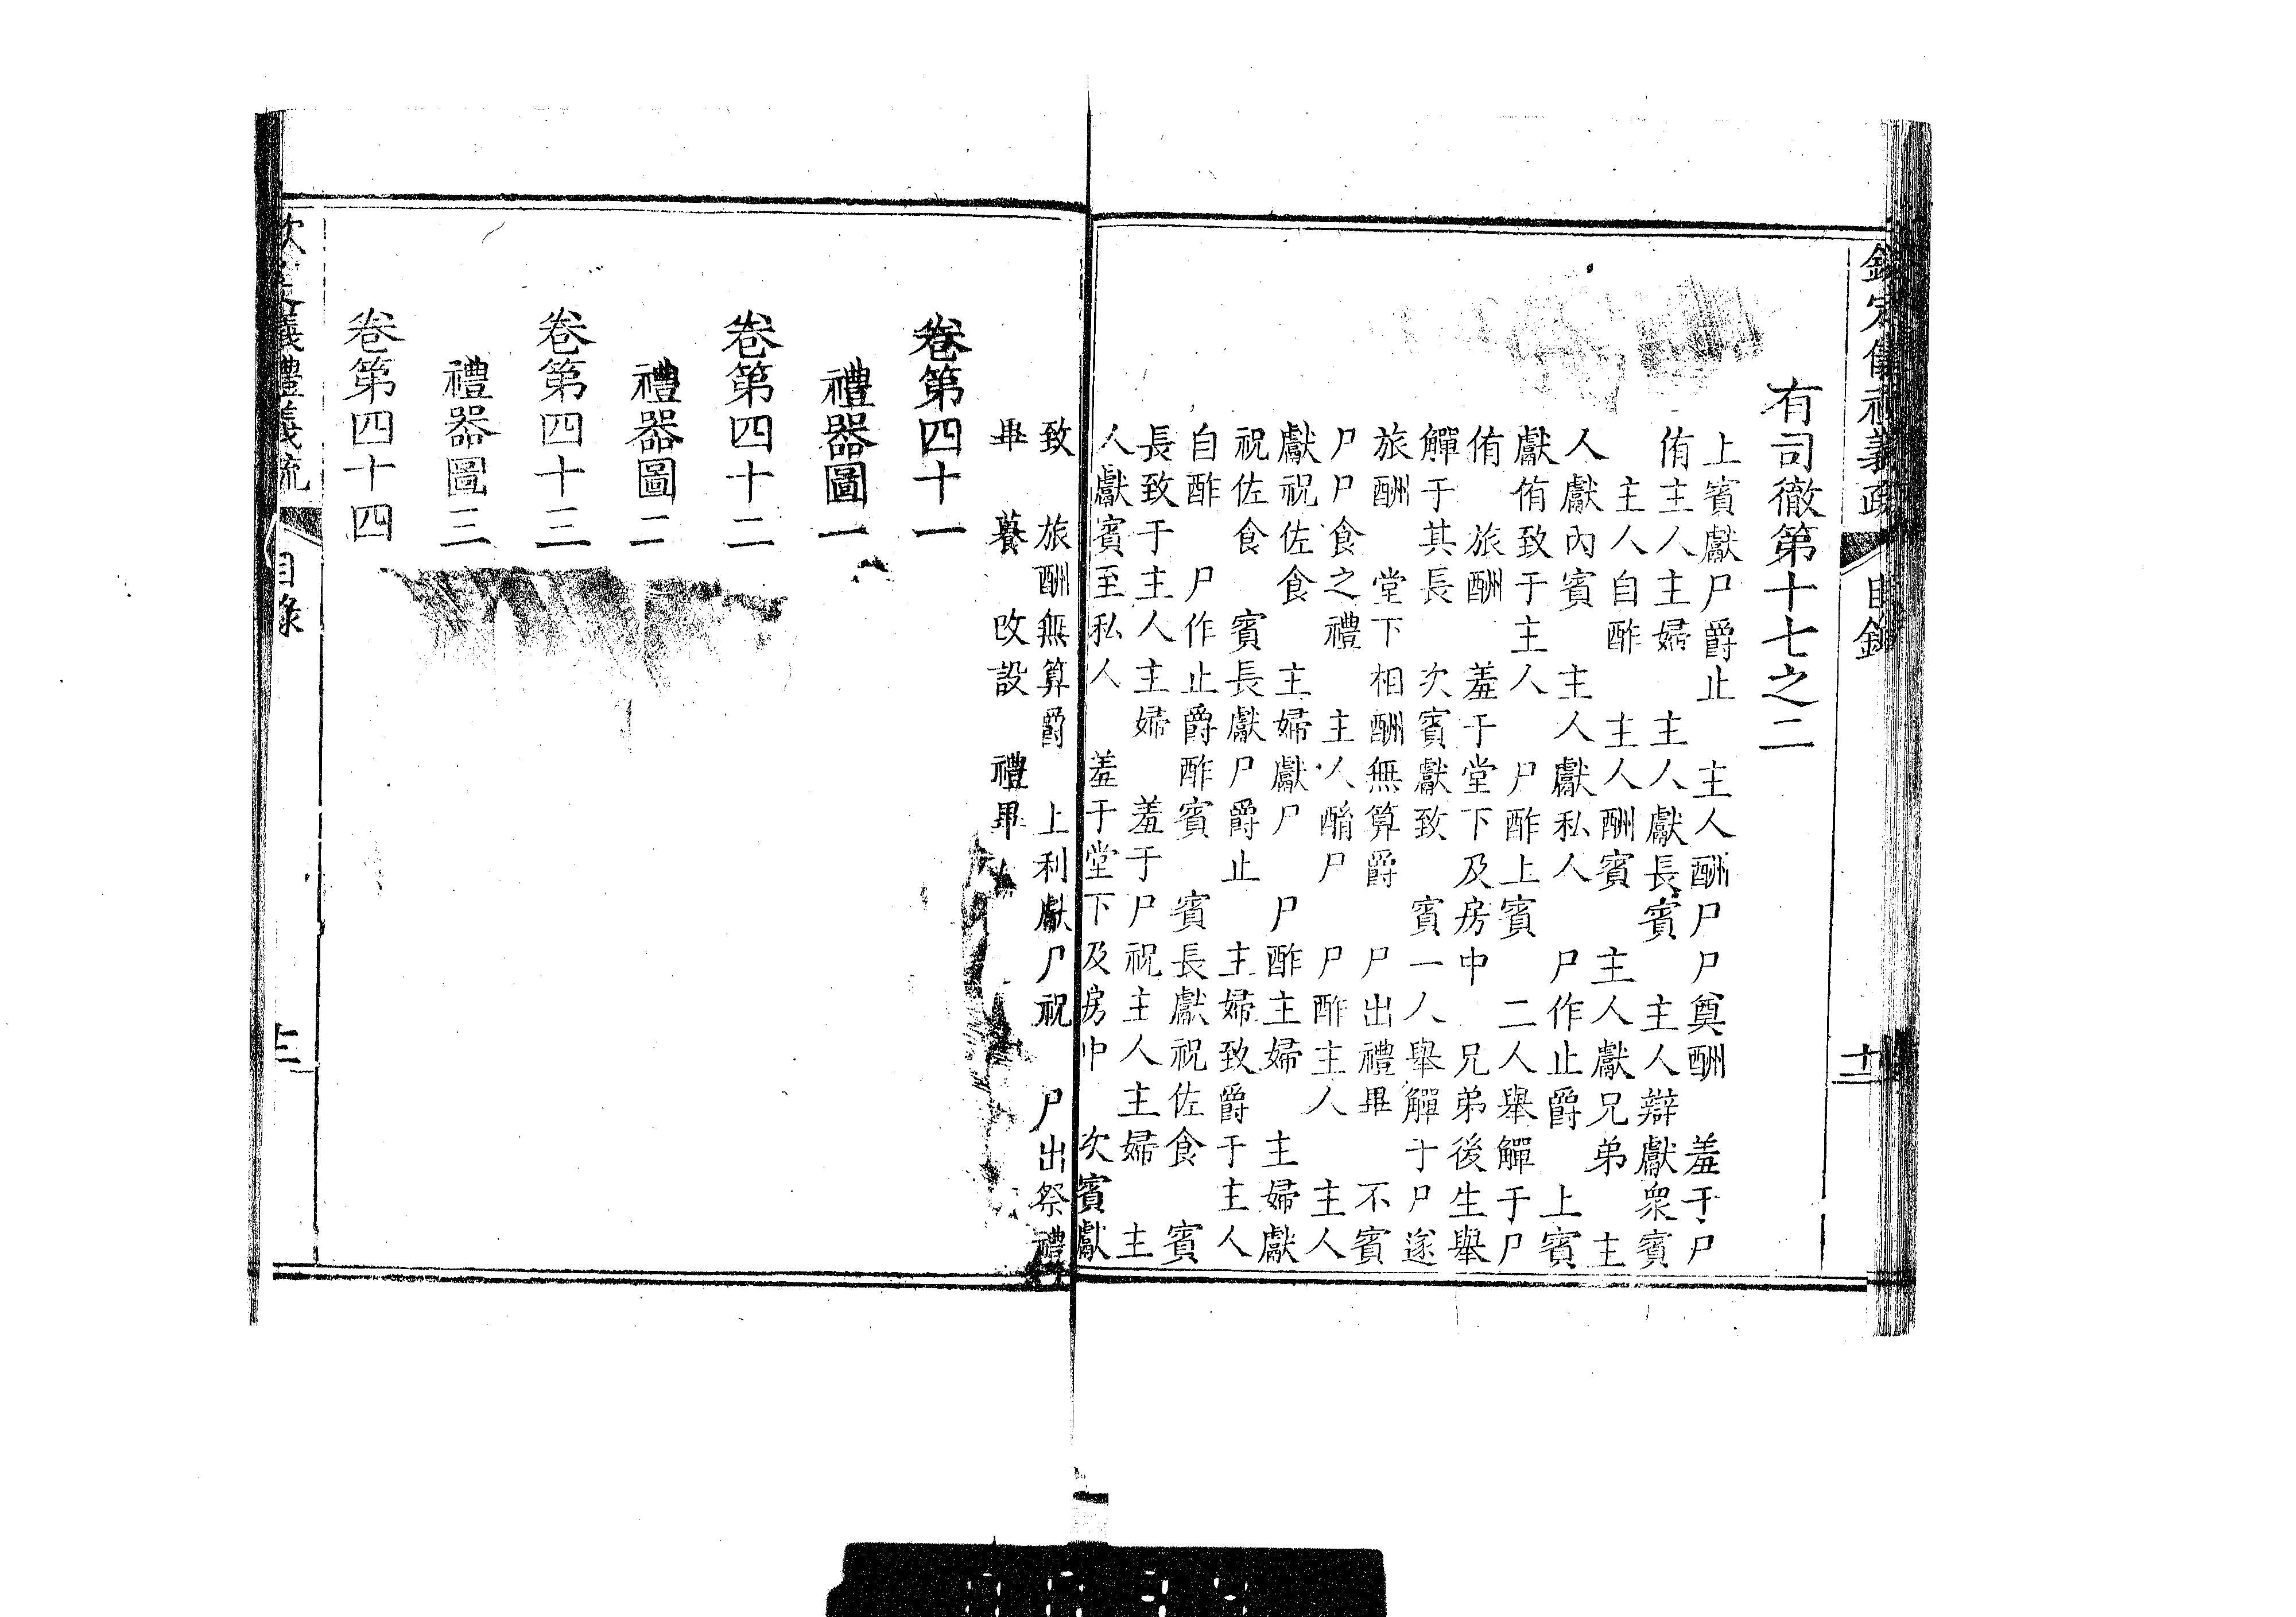 有司徹第十七之二
上賓獻尸爵止　主人酬尸尸奠酬　羞于尸
侑主人主婦　主人獻長賓　主人辯獻衆賓
主人自酢　主人酬賓　主人獻兄弟　主
人獻內賓　主人獻私人　尸作止爵　上賓
獻侑致于主人　尸酢上賓　二人舉觶于尸
侑　旅酬　羞于堂下及房中　兄弟後生舉
觶于其長　次賓獻致　賓一人舉觶于尸遂
旅酬　堂下相酬無算爵　尸出禮畢　不賓
尸尸食之禮　主人酳尸　尸酢主人　主人
獻祝佐食　主婦獻尸　尸酢主婦　主婦獻
祝佐食　賓長獻尸爵止　主婦致爵于主人
自酢　尸作止爵酢賓　賓長獻祝佐食　賓
長致于主人主婦　羞于尸祝主人主婦　主
人獻賓至私人　羞于堂下及房中　次賓獻
致　旅酬無算爵　上利獻尸祝　尸出祭禮
畢　養　改設　禮畢
卷第四十一
禮器圖一
卷第四十二
禮器圖二
卷第四十三
禮器圖三
卷第四十四
目錄